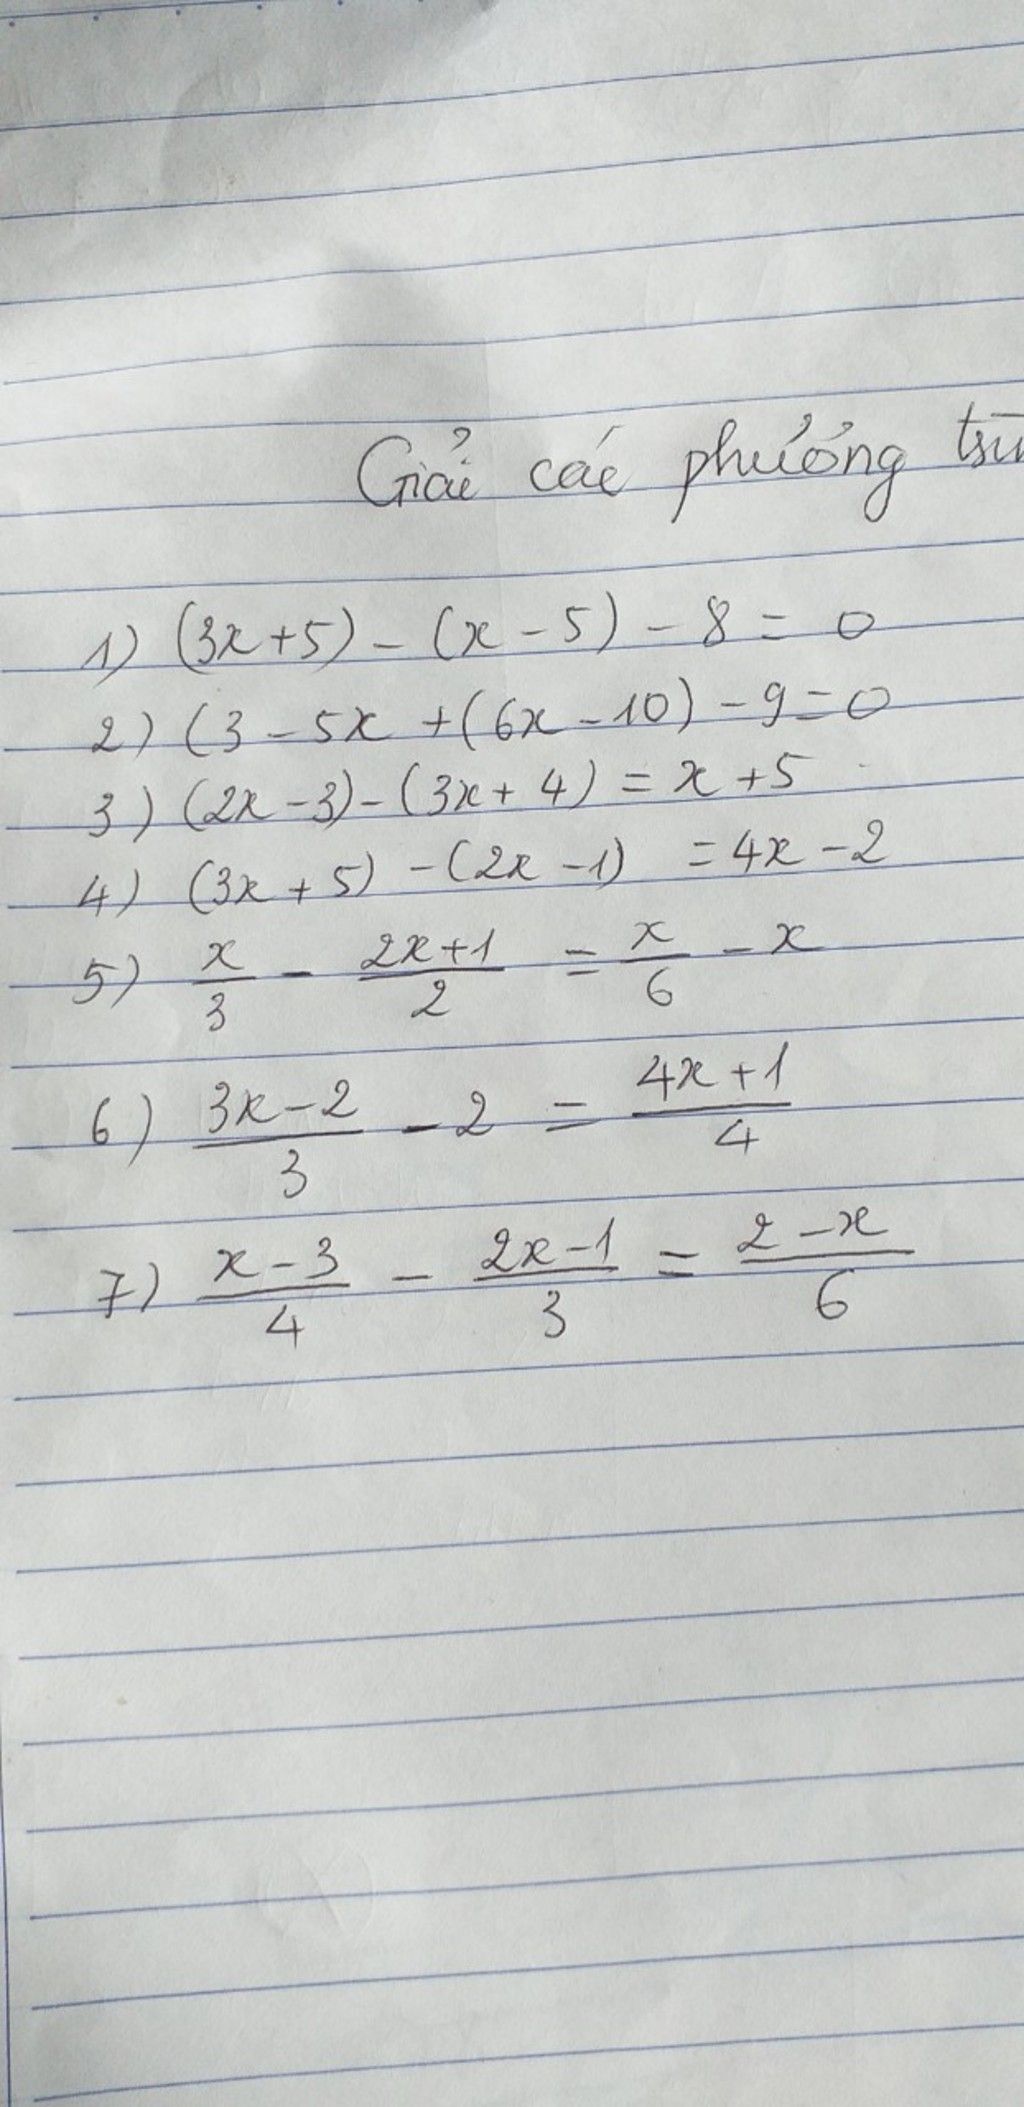 Giải các phương
1) (3x+5) - (x - 5) - 8 = 0
2) (3 - 5x + (6x - 10) - 9 = 0
3) (2x - 3) - (3x + 4) = x + 5
4) (3x + 5) - (2x - 1) = 4x - 2
5) x/3 - (2x+1)/2 = x/6 - x
6) (3x-2)/3 - 2 = (4x+1)/4
7) (x-3)/4 - (2x-1)/3 = (2-x)/6